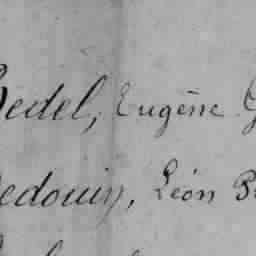 Bedel, Eugène
Bedouin, Léon